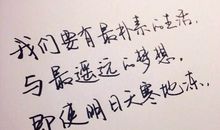 我们要有最朴素的生活
与最遥远的梦想.
即使明日天寒地冻.